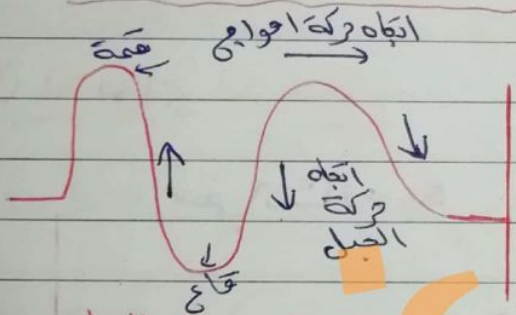 اتجاه حركة امواج
قمة
اتجاه
حركة
الحبل
قاع